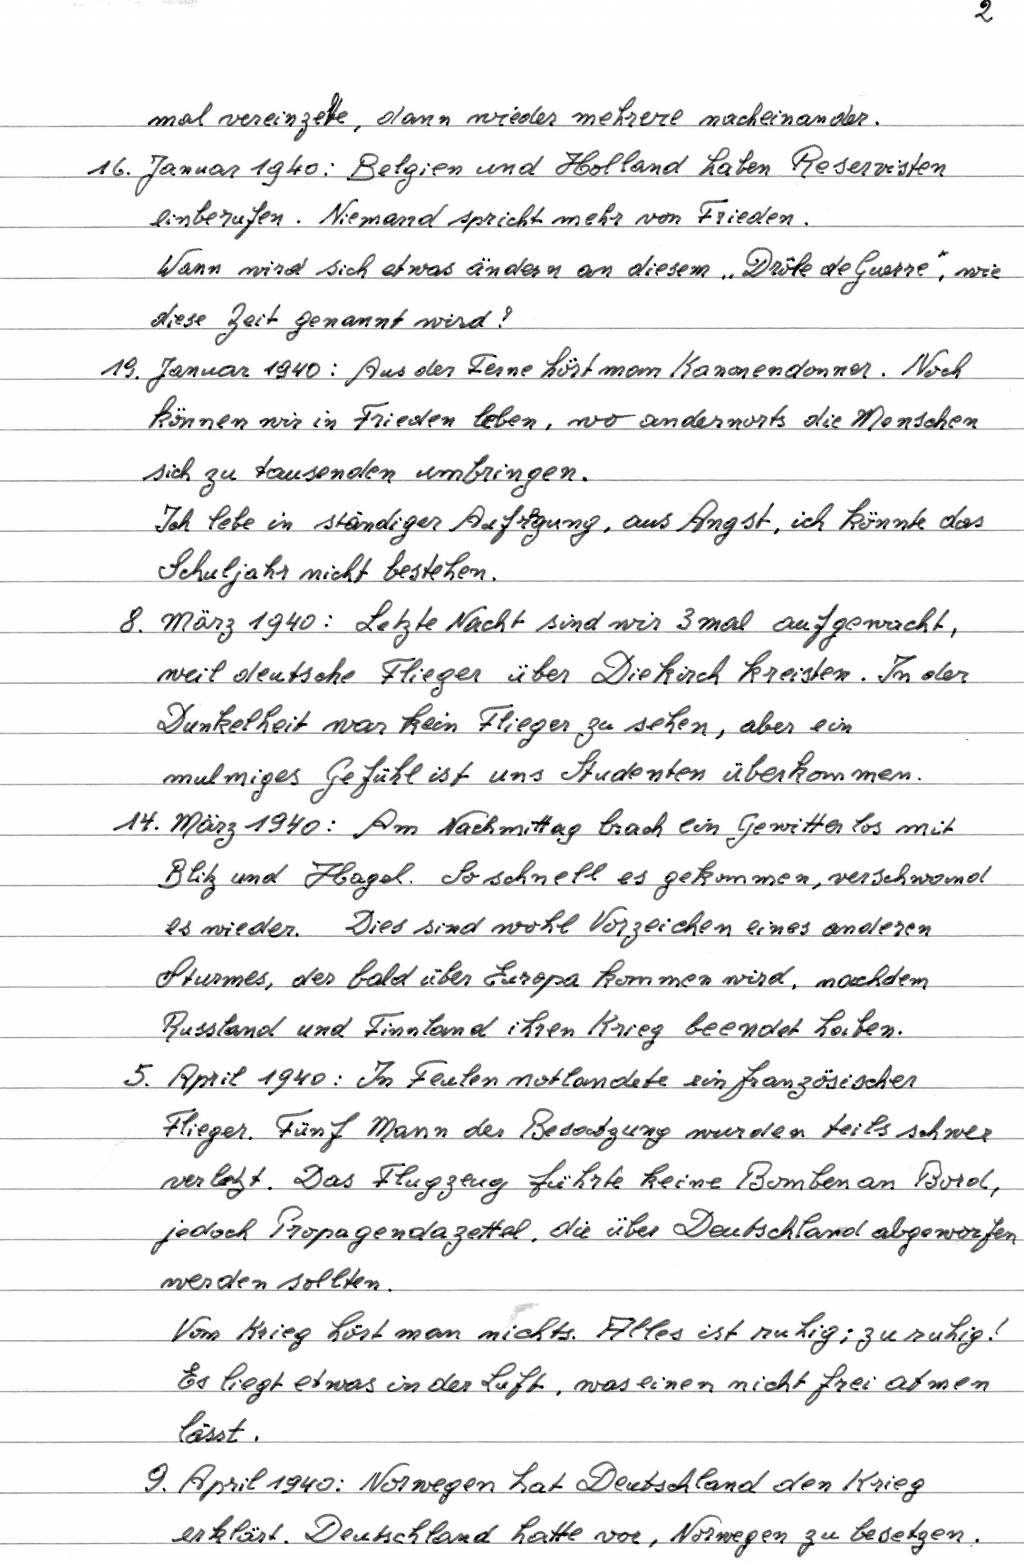 2
mal vereinzelte, dann wieder mehrere nacheinander.
16. Januar 1940: Belgien und Holland haben Reservisten
einberufen. Niemand spricht mehr von Frieden.
Wann wird sich etwas ändern an diesem „Drôle de Guerre", wie
diese Zeit genannt wird?
19. Januar 1940: Aus der Ferne hört man Kanonendonner. Noch
können wir in Frieden leben, wo andernorts die Menschen
sich zu tausenden umbringen.
Ich lebe in ständiger Aufregung, aus Angst, ich könnte das
Schuljahr nicht bestehen.
8. März 1940: Letzte Nacht sind wir 3mal aufgewacht,
weil deutsche Flieger über Diekirch kreisten. In der
Dunkelheit war kein Flieger zu sehen, aber ein
mulmiges Gefühl ist uns Studenten überkommen.
14. März 1940: Am Nachmittag brach ein Gewitter los mit
Blitz und Hagel. So schnell es gekommen, verschwand
es wieder. Dies sind wohl Vorzeichen eines anderen
Sturmes, der bald über Europa kommen wird, nachdem
Russland und Finnland ihren Krieg beendet haben.
5. April 1940: In Feulen notlandete ein französischer
Flieger. Fünf Mann der Besatzung wurden teils schwer
verletzt. Das Flugzeug führte keine Bomben an Bord,
jedoch Propagendazettel, die über Deutschland abgeworfen
werden sollten.
Vom Krieg hört man nichts. Alles ist ruhig; zu ruhig!
Es liegt etwas in der Luft, was einen nicht frei atmen
lässt.
9. April 1940: Norwegen hat Deutschland den Krieg
erklärt. Deutschland hatte vor, Norwegen zu besetzen.